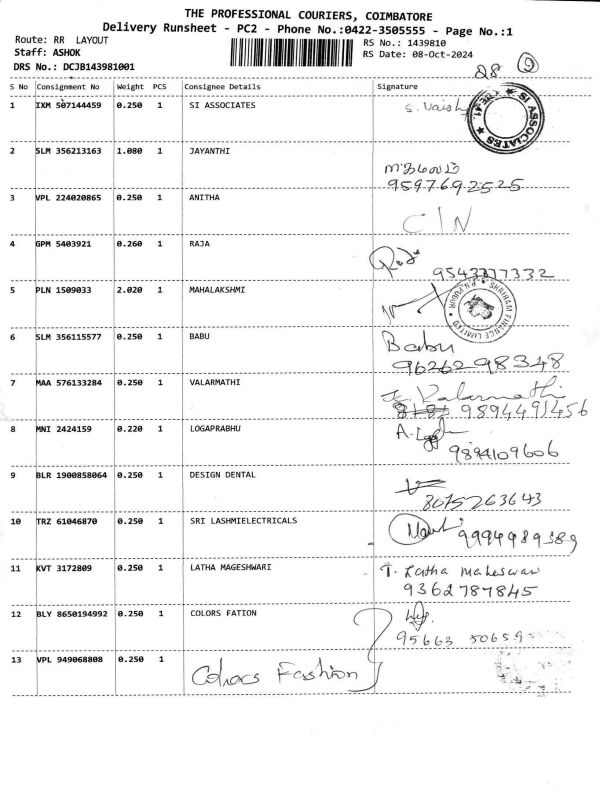 THE PROFESSIONAL COURIERS, COIMBATORE
Delivery Runsheet - PC2 - Phone No.:0422-3505555 - Page No.:1
Route: RR LAYOUT
RS No.: 1439810
Staff: ASHOK
RS Date: 08-Oct-2024
DRS No.: DCJB143981001
S No Consignment No Weight PCS Consignee Details Signature
1 IXM 507144459 0.250 1 SI ASSOCIATES
SI ASSOCIATES
2 SLM 356213163 1.080 1 JAYANTHI
9597692525
3 VPL 224020865 0.250 1 ANITHA
C/N
4 GPM 5403921 0.260 1 RAJA
9543377332
5 PLN 1509033 2.020 1 MAHALAKSHMI
SHRIRAM FINANCE LIMITED
6 SLM 356115577 0.250 1 BABU Babu
9626298348
7 MAA 576133284 0.250 1 VALARMATHI Valarmathi
9894491456
8 MNI 2424159 0.220 1 LOGAPRABHU
9894109606
9 BLR 1900858064 0.250 1 DESIGN DENTAL
8075263643
10 TRZ 61046870 0.250 1 SRI LASHMIELECTRICALS
9994989389
11 KVT 3172809 0.250 1 LATHA MAGESHWARI T. Latha Maheswari
9362787845
12 BLY 8650194992 0.250 1 COLORS FATION
95663 50659
13 VPL 949068808 0.250 1 Colors Fashion